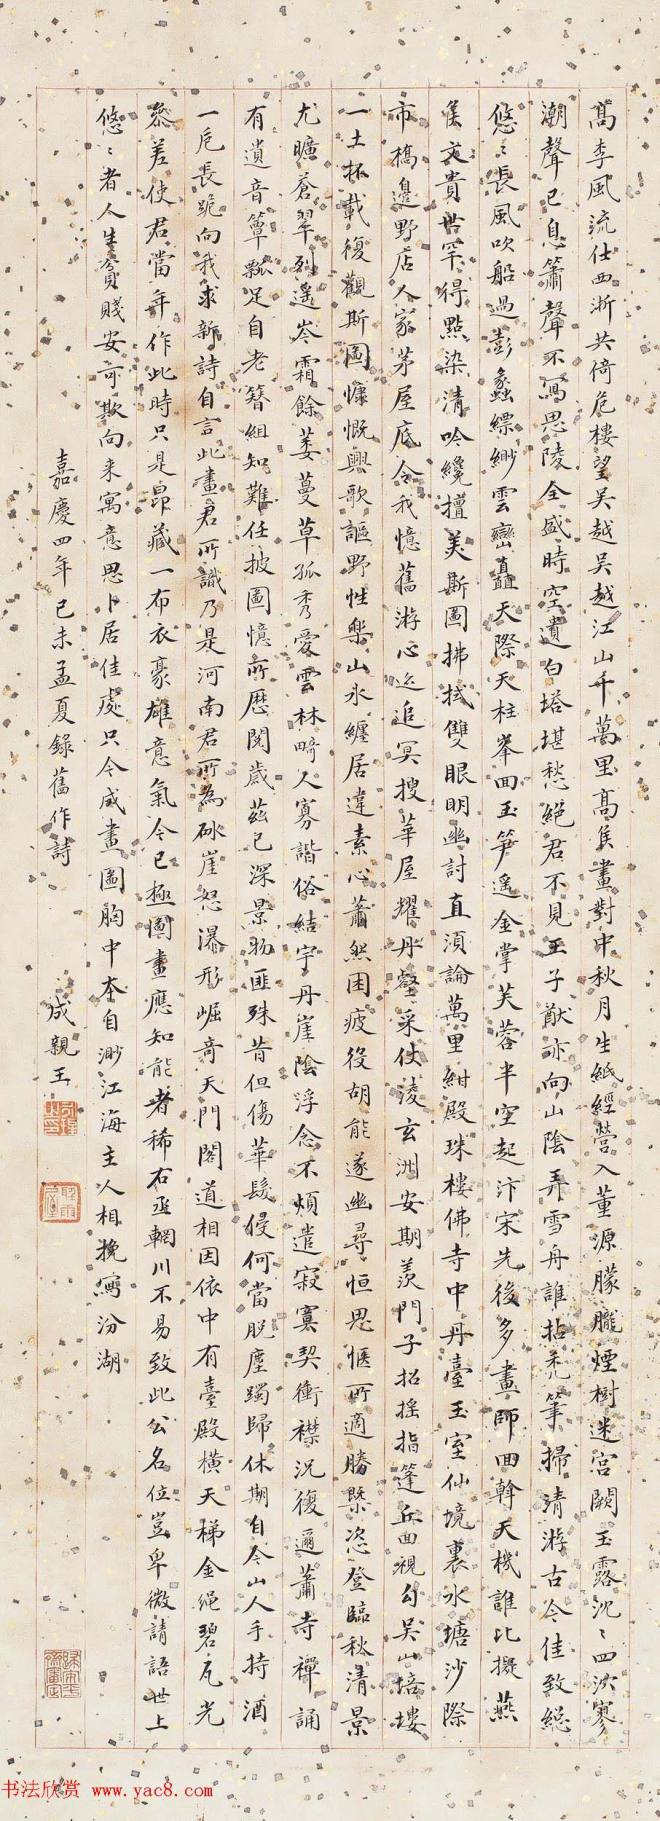 高李風流仕西浙共倚危樓望吳越吳越江山千萬里高侯畫對中秋月生紙經營入董源朦朧煙樹迷宮闕玉露沈〻四泬寥
潮聲已息簫聲不寫思陵全盛時空遺白塔堪愁絕君不見王子猷亦向山陰弄雪舟誰拈禿筆掃清游古今佳致總
悠〻長風吹船過彭蠡縹緲雲巒矗天際天柱峯回玉笋遙金掌芙蓉半空起汴宋先後多畫師回斡天機誰比擬燕
侯文貴世罕得點染清吟纔擅美斯圖拂拭雙眼明幽討直須論萬里紺殿珠樓佛寺中丹臺玉室仙境裏水塘沙際
市橋邊野店人家茅屋底令我憶舊游心迄追冥搜華屋耀丹壑采仗淩玄洲安期羨門子招搖指篷丘回視勾吳山培塿
一土抔載復觀斯圖慷慨興歌謳野性樂山水纏居違素心蕭然困疲役胡能遂幽尋恒思愜所適勝槩恣登臨秋清景
尤曠蒼翠列遙岑霜餘萎蔓草孤秀愛雲林畸人寡諧俗結宇丹崖陰浮念不煩遣寂寞契衝襟況復邇蕭寺禪誦
有遺音簞瓢足自老簪組知難任披圖憶所歷閱歲茲已深景物匪殊昔但傷華髮侵何當脫塵躅歸休期自今山人手持酒
一卮長跪向我求新詩自言此畫君所識乃是河南君所為砯崖怒瀑形崛奇天門閣道相因依中有臺殿橫天梯金繩碧瓦光
參差使君當年作此時只是昂藏一布衣豪雄意氣今已極圖畫應知能者稀右丞輞川不易致此公名位豈卑微請語世上
悠〻者人生貧賤安可欺向来寓意思卜居佳處只今咸畫圖胸中本自渺江海主人相挽寫汾湖
嘉慶四年己未孟夏錄舊作詩 成親王
书法欣赏 www.yac8.com